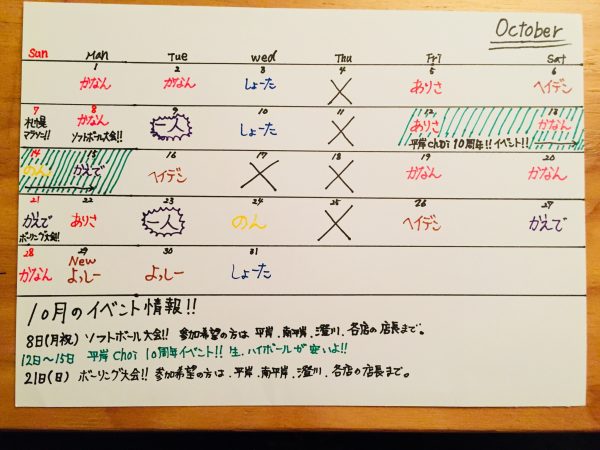 October
Sun Man Tue wed Thu Fri Sat
1 2 3 4 5 6
かなん かなん しょーた × ありさ ヘイデン
7 8 9 10 11 12 13
札幌マラソン!! かなん 一人 しょーた × ありさ かなん
ソフトボール大会!! 平岸choi 10周年!!イベント!!
14 15 16 17 18 19 20
のん かえで ヘイデン × × かなん かなん
21 22 23 24 25 26 27
かえで ありさ 一人 のん × ヘイデン かえで
ボーリング大会!!
28 29 30 31
New
かなん よっしー よっしー しょーた
10月のイベント情報!!
8日(月祝) ソフトボール大会!! 参加希望の方は 平岸、南平岸、澄川、各店の店長まで。
12日〜15日 平岸 choi 10周年イベント!! 生、ハイボールが安いよ!!
21日(日) ボーリング大会!! 参加希望の方は、平岸、南平岸、澄川、各店の店長まで。